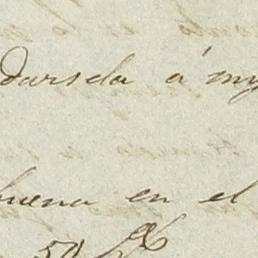 darsela á my
buena en el
50